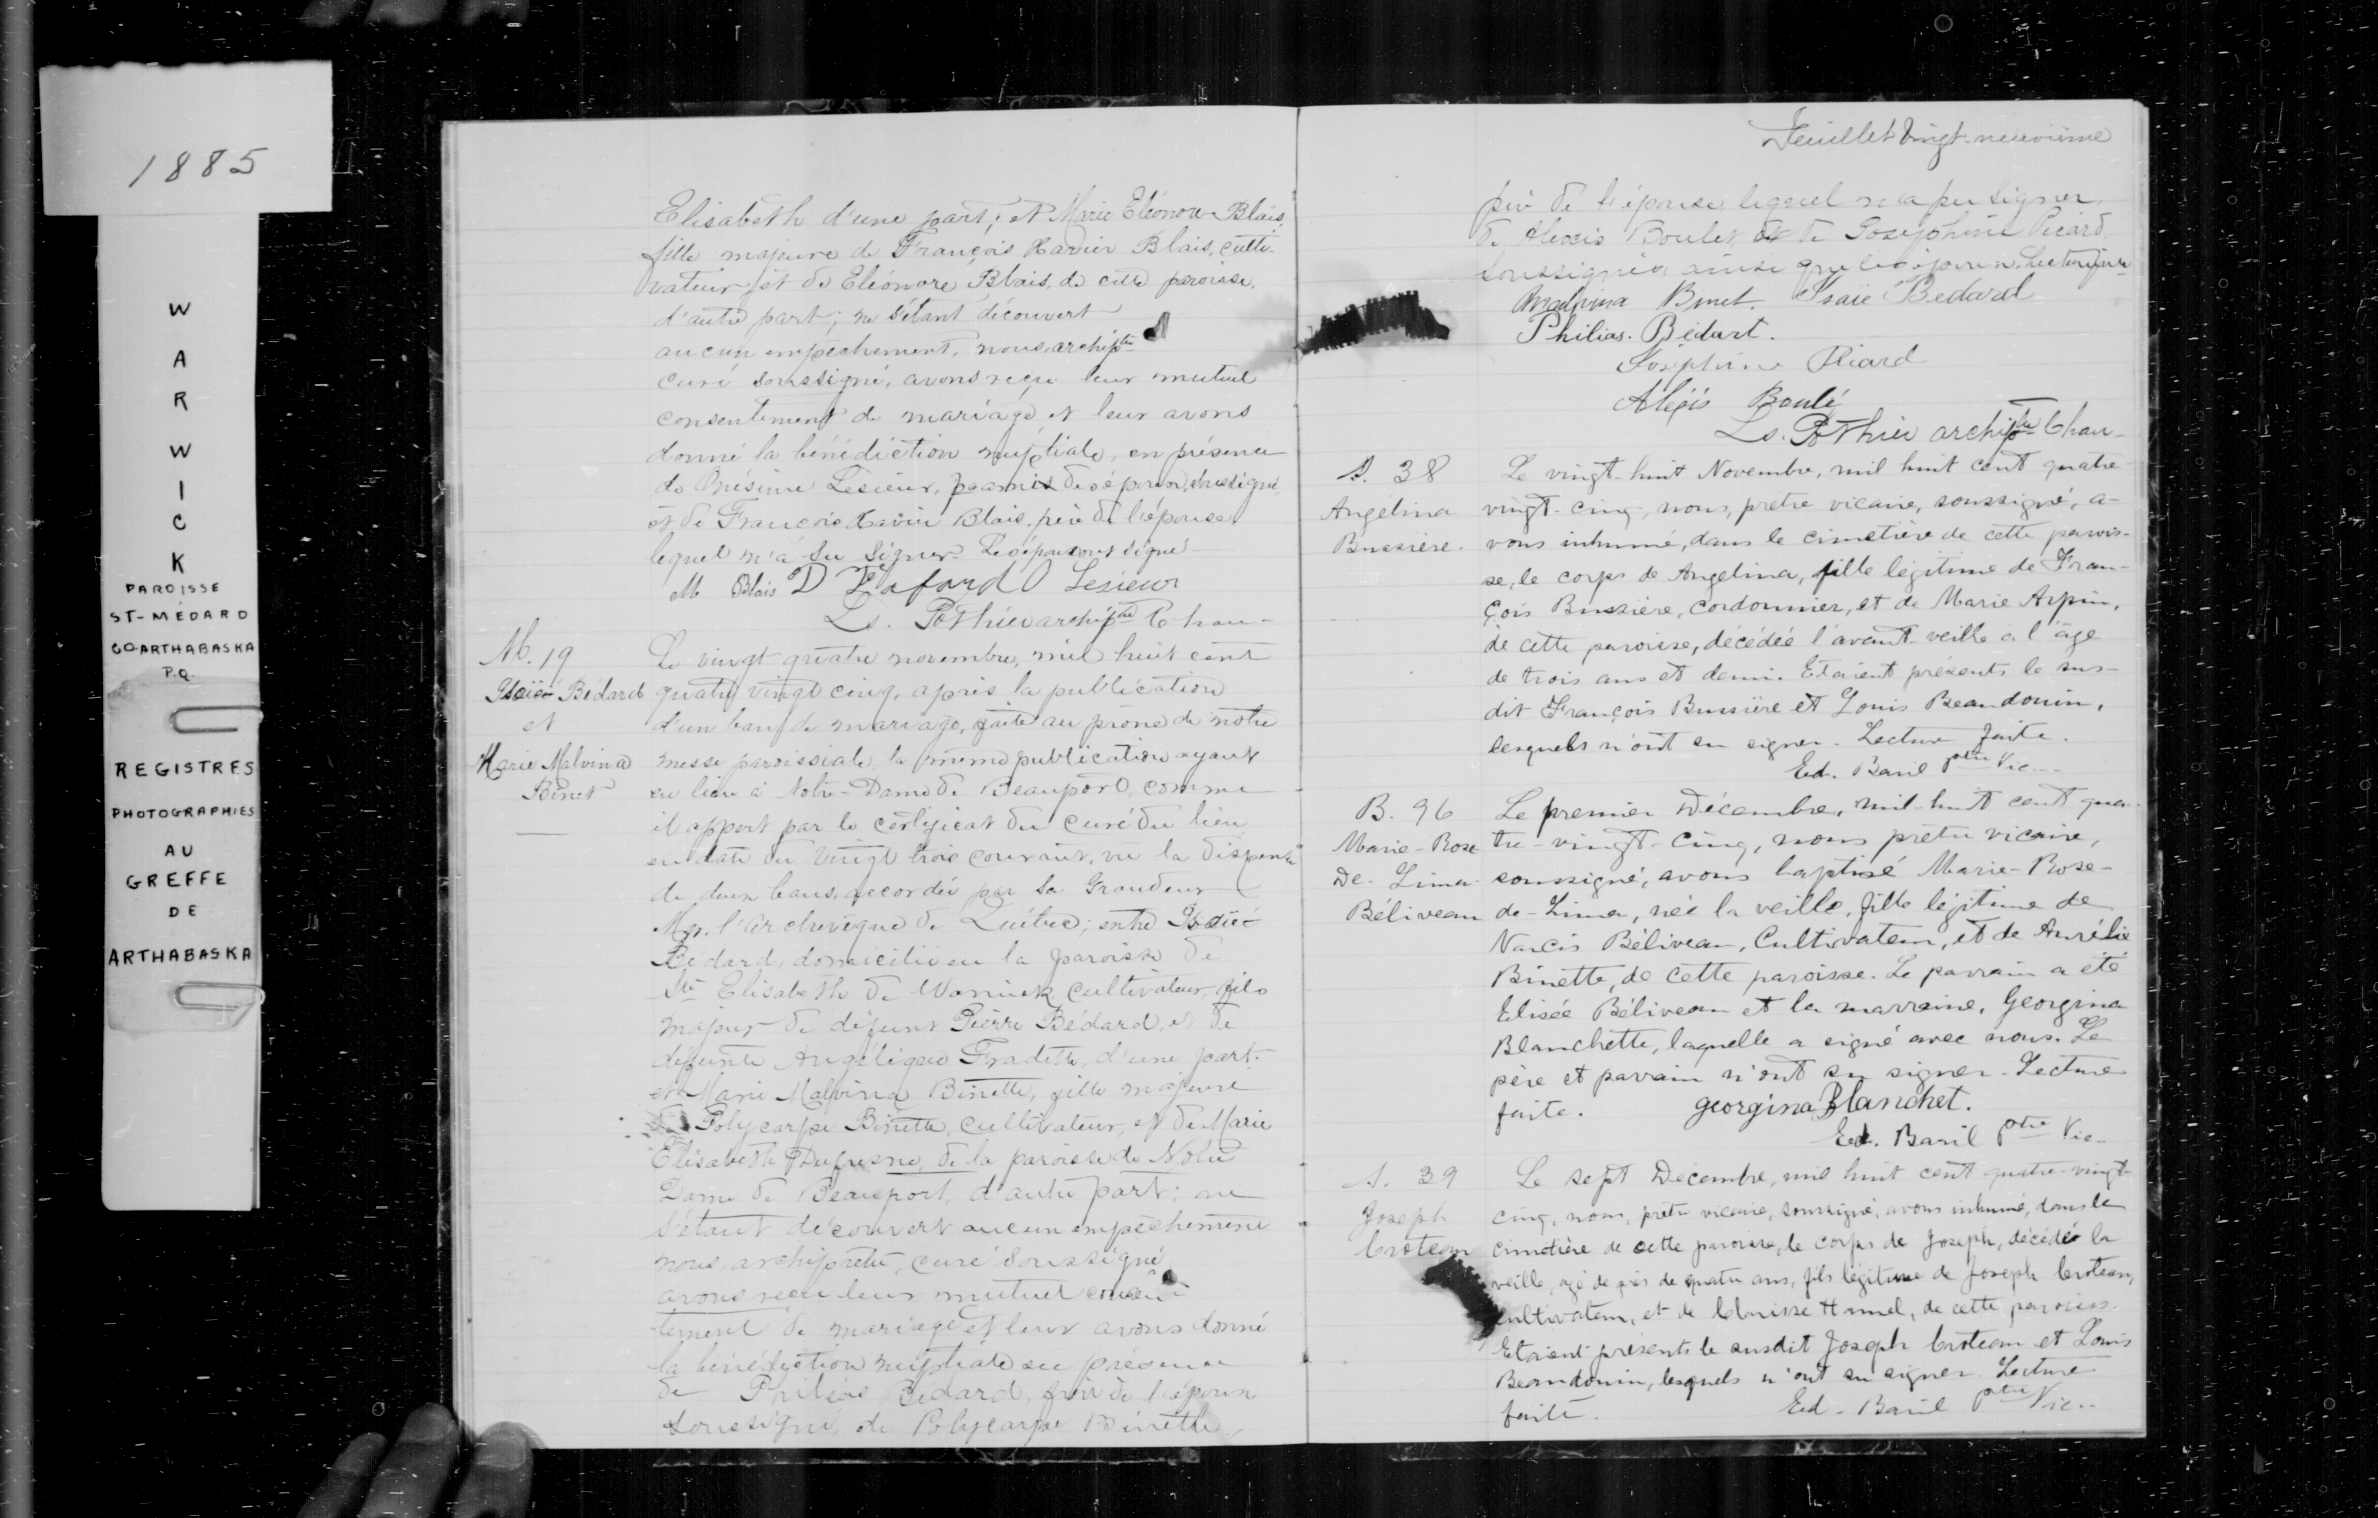 1885
WARWICK
PAROISSE
ST-MÉDARD
CO-ARTHABASKA
P.Q.
REGISTRES
PHOTOGRAPHIES
AU
GREFFE
DE
ARTHABASKA
Elisabeth d'une part; et Marie Eléonore Blais,
fille majeure de François Xavier Blais, culti-
vateur, et de Eléonore Blais, de cette paroisse,
d'autre part; ne s'étant découvert
aucun empêchement, nous, archiptre
curé soussigné, avons reçu leur mutuel
consentement de mariage et leur avons
donné la bénédiction nuptiale, en présence
de Onésime Lesieur, soussigné,
et de François Xavier Blais, père de l'épouse
lequel n'a su signer. Les époux ont signé
M Blais D Lafond O Lesieur
Ls. Pothier archiptre Chan-
M. 19
Isaïe Bédard
et
Marie Malvina
Binet
Le vingt quatre novembre, mil huit cent
quatre vingt cinq, après la publication
d'un ban de mariage, faite au prône de notre
messe paroissiale, la même publication ayant
eu lieu à Notre-Dame de Beauport, comme
il appert par le certificat du curé du lieu
en date du vingt trois courant, vu la dispense
de deux bans accordée par Sa Grandeur
Mgr. l'Archevêque de Québec; entre Isaïe
Bédard, domicilié en la paroisse de
Ste Elisabeth de Warwick, cultivateur, fils
majeur de défunt Pierre Bédard, et de
défunte Angélique Fradette, d'une part;
et Marie Malvina Binette, fille majeure
de Polycarpe Binette, cultivateur, et de Marie
Elisabeth Dufresne, de la paroisse de Notre
Dame de Beauport, d'autre part; ne
s'étant découvert aucun empêchement
nous, archiprêtre, curé soussigné
avons reçu leur mutuel consen-
tement de mariage et leur avons donné
la bénédiction nuptiale en présence
de Philias Bédard, frère de l'époux
soussigné, de Polycarpe Binette,
Feuillet vingt-neuvième
père de l'épouse, lequel n'a pu signer,
de Alexis Boulet et de Joséphine Picard
soussignés, ainsi que les époux. Lecture faite
Malvina Binet. Isaïe Bedard
Philias. Bédart.
Joséphine Picard
Alexis Boulé
Ls. Pothier archiptre Chan-
S. 38
Angélina
Bussière.
Le vingt-huit Novembre, mil huit cent quatre-
vingt-cinq, nous, prêtre vicaire, soussigné, a-
vons inhumé, dans le cimetière de cette parois-
se, le corps de Angelina, fille légitime de Fran-
çois Bussière, cordonnier, et de Marie Arpin,
de cette paroisse, décédée l'avant-veille à l'âge
de trois ans et demi. Etaient présents le sus-
dit François Bussière et Louis Beaudouin,
lesquels n'ont su signer. Lecture faite.
Ed. Baril ptre Vic--
B. 96
Marie-Rose
De-Lima
Béliveau
Le premier Décembre, mil-huit cent qua-
tre-vingt-cinq, nous prêtre vicaire,
soussigné, avons baptisé Marie-Rose-
de-Lima, née la veille, fille légitime de
Narcis Béliveau, Cultivateur, et de Aurélie
Binette, de cette paroisse. Le parrain a été
Elisée Béliveau et la marraine, Georgina
Blanchette, laquelle a signé avec nous. Le
père et parrain n'ont su signer. Lecture
faite. georgina Blanchet.
Ed. Baril ptre Vic-
S. 39
Joseph
Croteau
Le sept Décembre, mil huit cent quatre-vingt-
cinq, nous, prêtre vicaire, soussigné, avons inhumé, dans le
cimetière de cette paroisse, le corps de Joseph, décédé la
veille, agé de près de quatre ans, fils légitime de Joseph Croteau,
Cultivateur, et de Clarisse Hamel, de cette paroisse.
Etaient présents le susdit Joseph Croteau et Louis
Beaudouin, lesquels n'ont su signer. Lecture
faite. Ed. Baril ptre Vic..